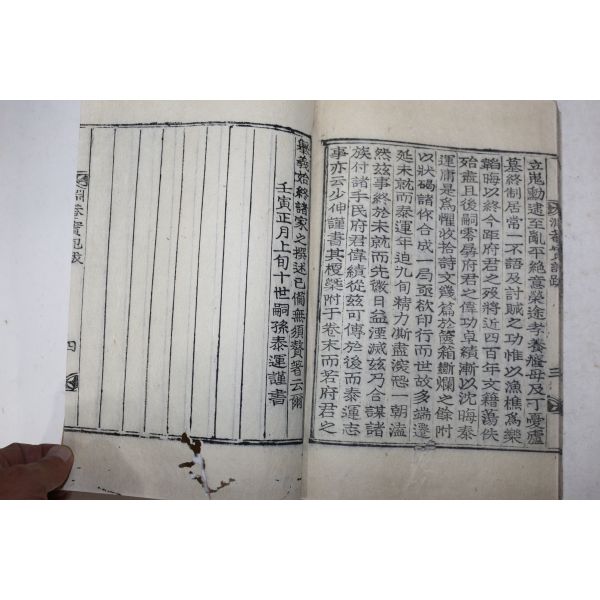 立嵬勳逮至亂平絶意榮途孝養盤母及丁憂廬
墓終制居常一不語及計賊之功惟以漁樵爲樂
韜晦以終今距府君之歿將近四百年文籍蕩佚
殆盡且後嗣零孱府君之偉功卓績漸以沈晦泰
運庸是爲懼收拾詩文幾篇於篋箱斷爛之餘附
以狀碣諸作合成一局亟欲印行而世故多端遷
延未就而泰運年迫九旬精力澌盡深恐一朝溘
然玆事終於未就而先徽日益湮滅玆乃合謀諸
族付諸手民府君偉績從玆可傳於後而泰運志
事亦云少伸謹書其梗槩附于卷末而若府君之
舉義始終諸家之撰述已備無須贅著云爾
壬寅正月上旬十世嗣孫泰運謹書
三
四